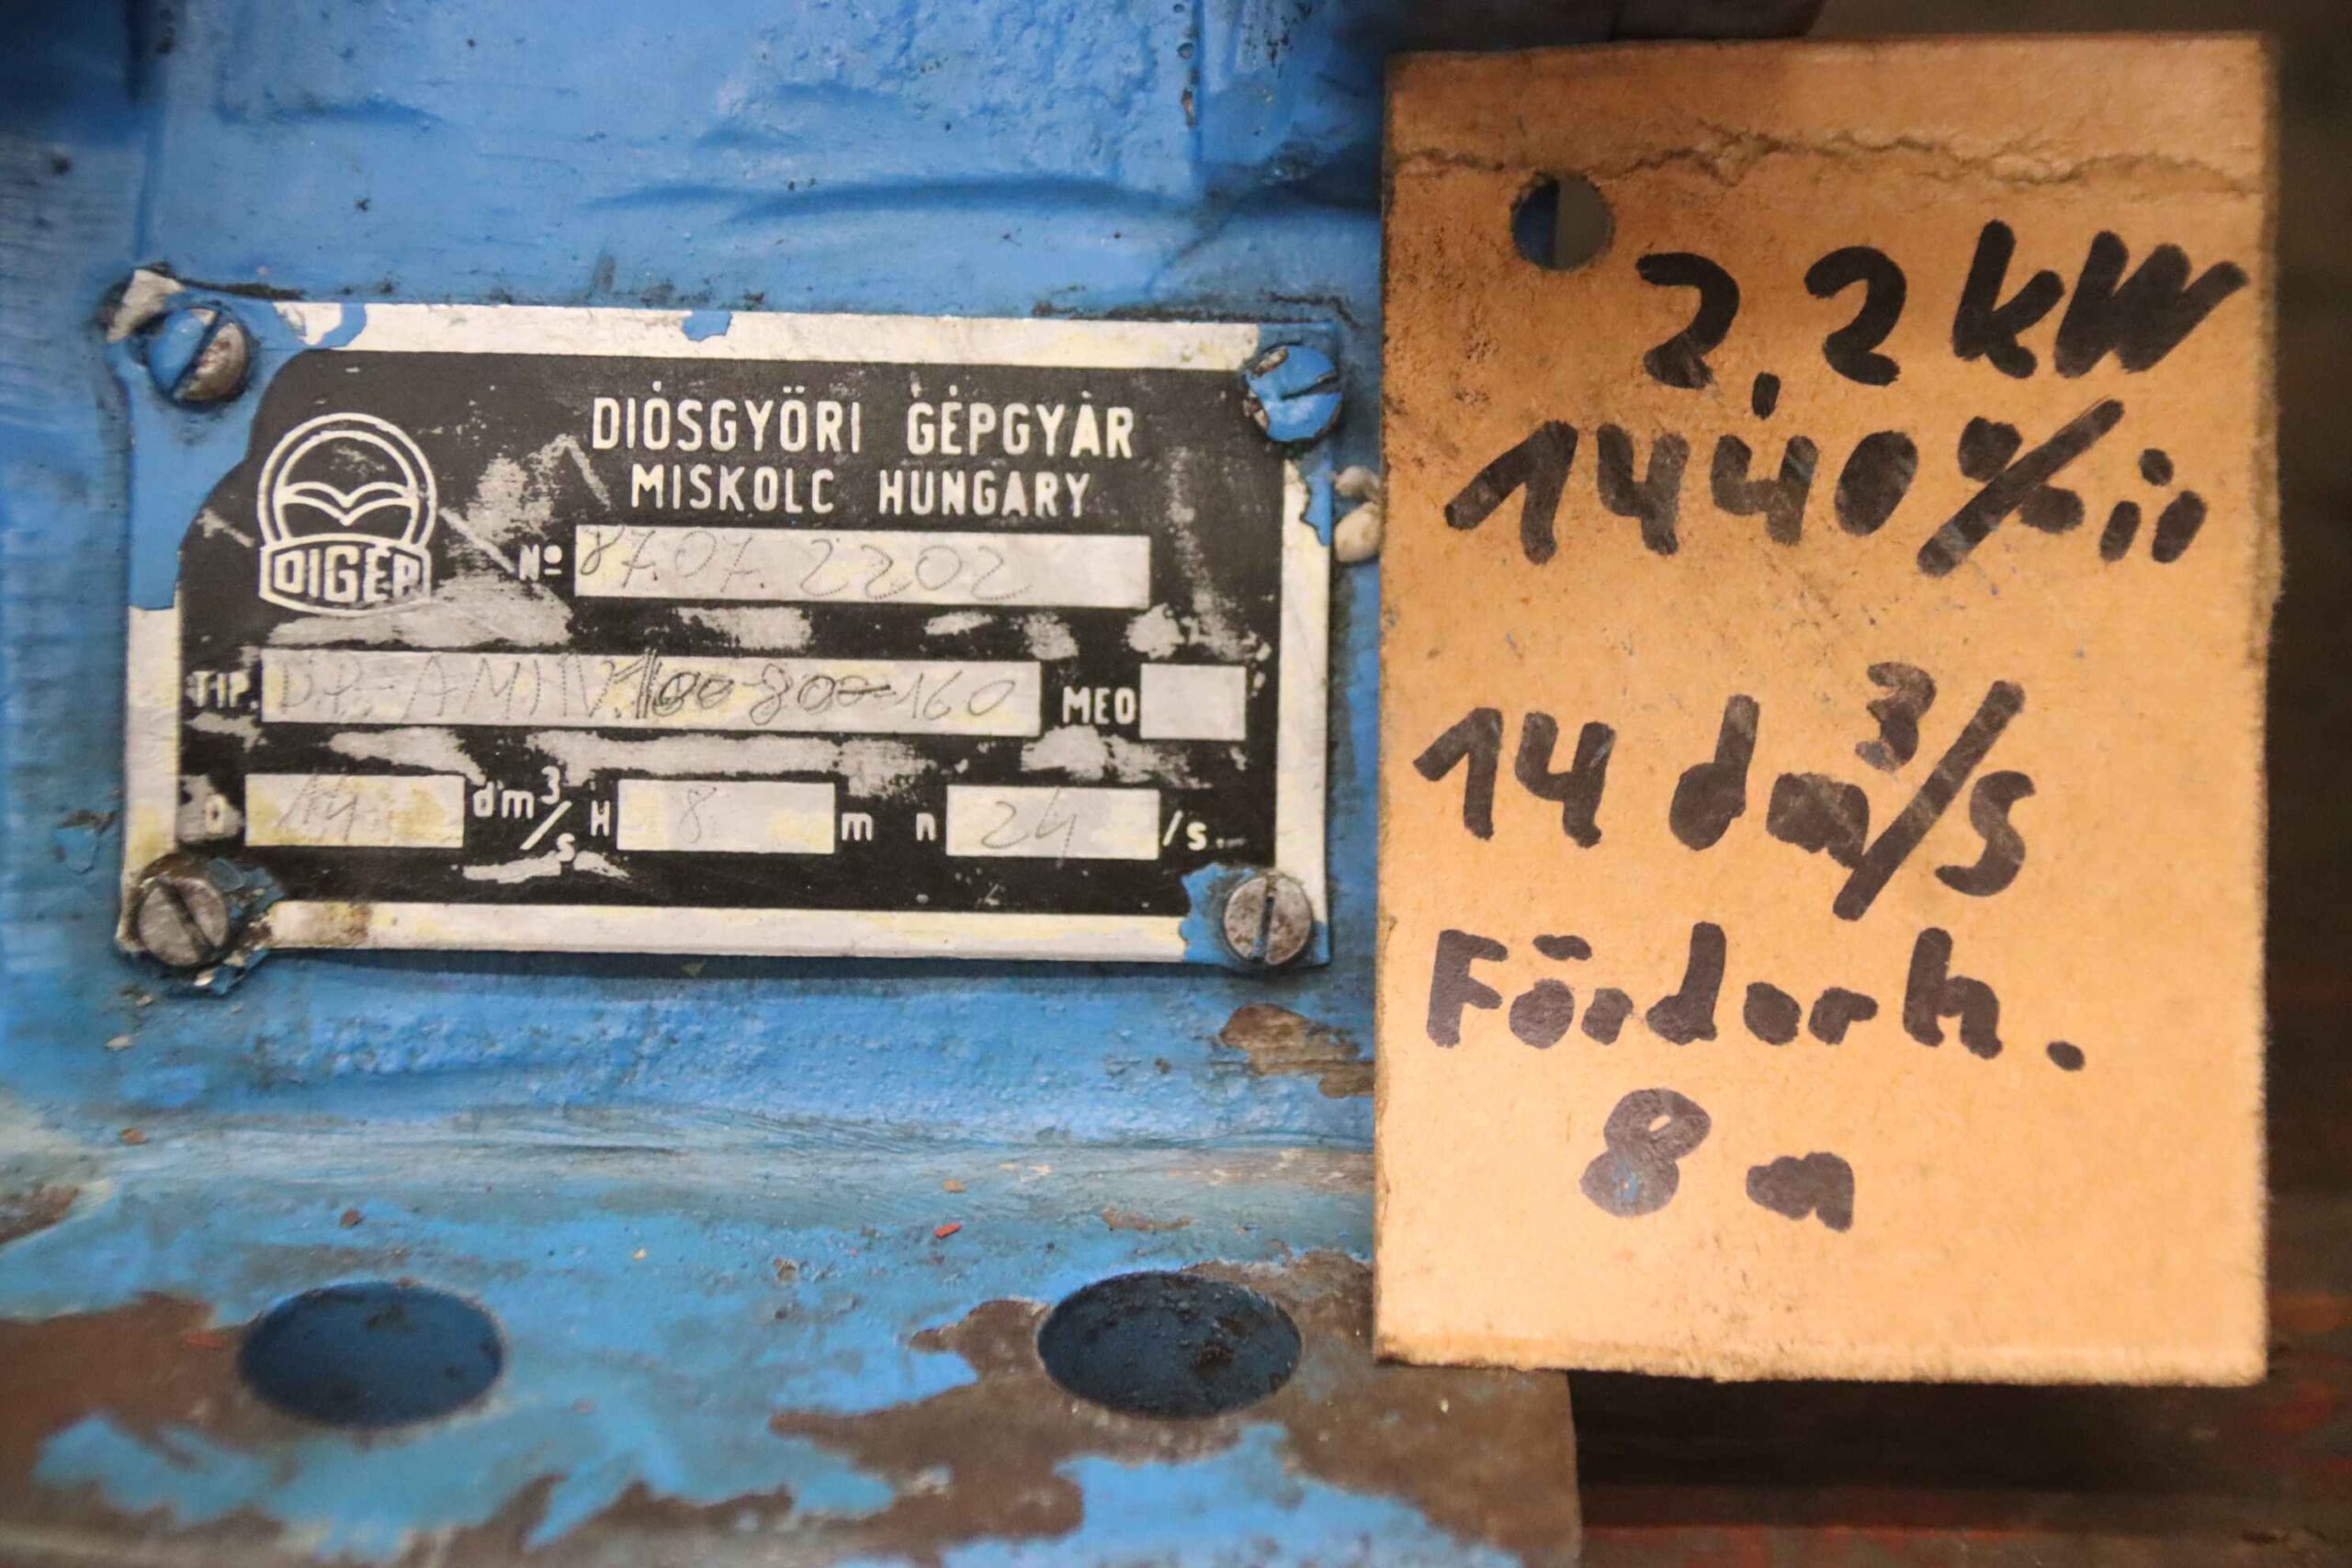 DIÓSGYÖRI GÉPGYÁR
MISKOLC HUNGARY
DIGÉP
№ 87.07.2202
TIP. 100-80-160 MEO
Q 14 dm³/s H 8 m n 24 /s
2,2 kW
1440
14 dm³/s
Förderh.
8 m